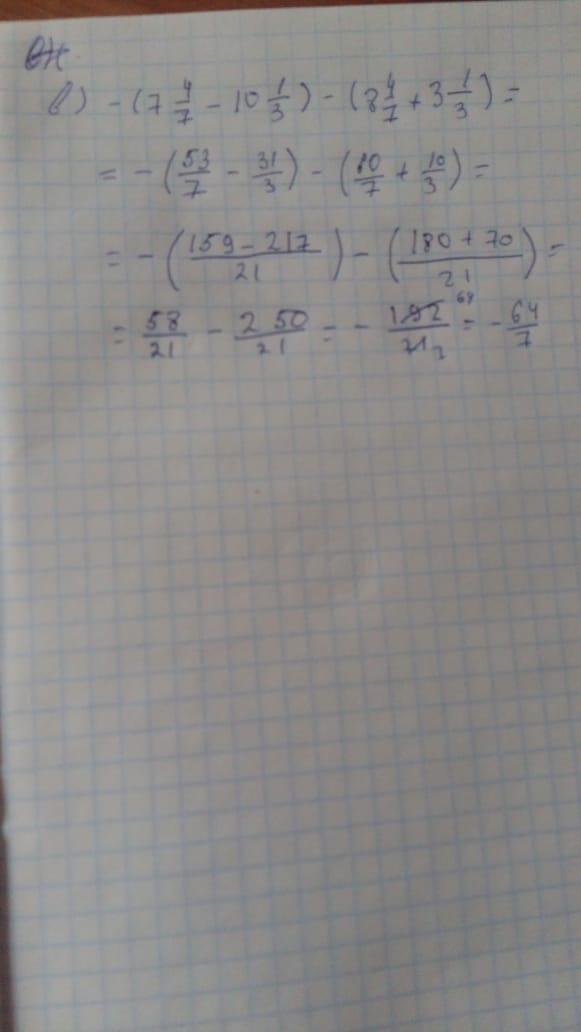 в) -(7 4/7 - 10 1/3) - (8 4/7 + 3 1/3) =
= -(53/7 - 31/3) - (80/7 + 10/3) =
= -((159 - 217)/21) - ((180 + 70)/21) =
= 58/21 - 250/21 = - 192/21 = - 64/7